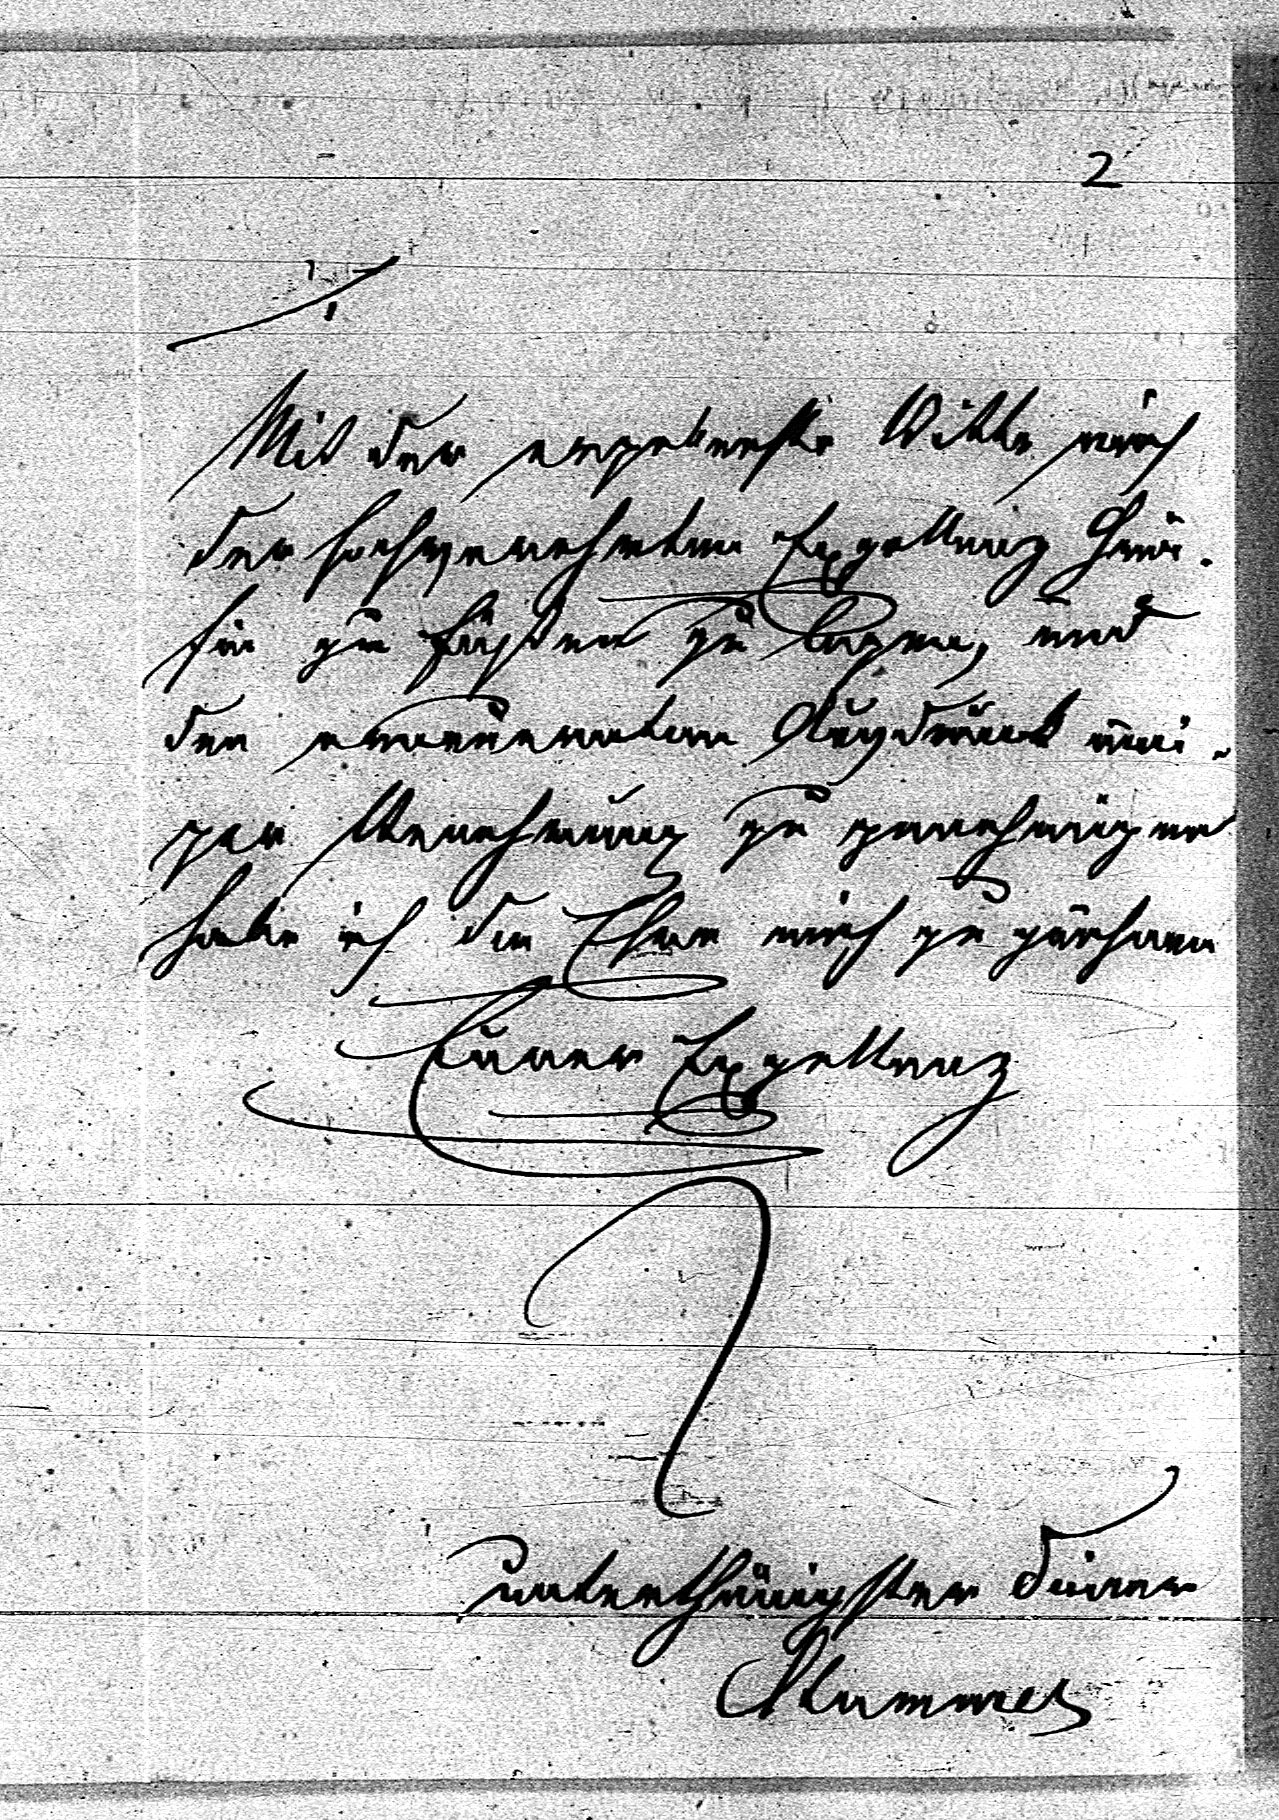 2
Mit der ergebensten Bitte mich
der hochverehrten Exzellenz Frau
zu Füßen zu legen, und
den erneuerten Ausdruck inni-
ger Verehrung zu genehmigen
habe ich die Ehre mich zu zeichnen
Euerer Exzellenz
unterthänigster Diener